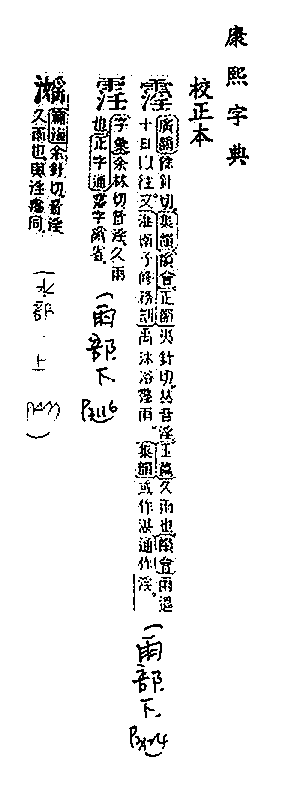 康熙字典
校正本
霪 廣韻餘針切集韻韻會正韻夷針切𠀤音淫玉篇久雨也韻會雨過
十日以往又淮南子修務訓禹沐浴霪雨集韻或作湛通作淫
(雨部下
霪 字彙余林切音淫久雨
也正字通霪字譌省
(雨部下 P3116
余針切音淫
久雨也與淫霪同